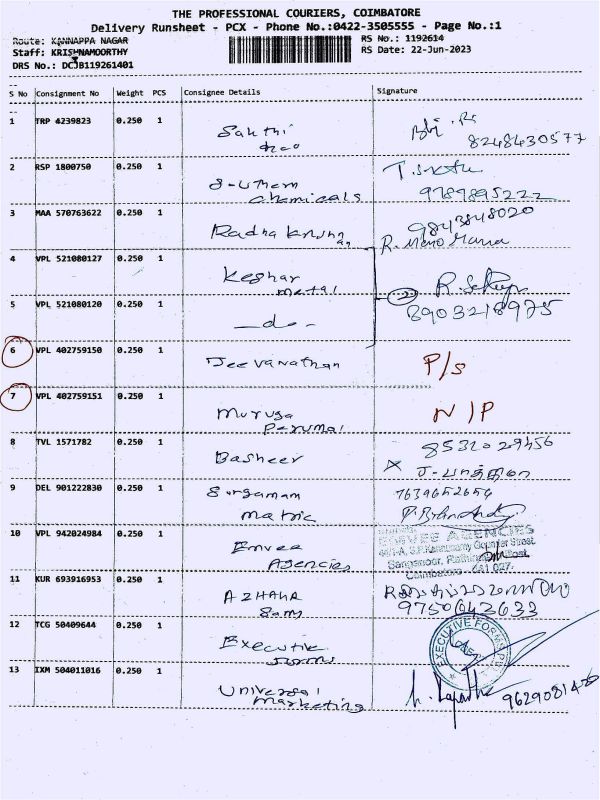 THE PROFESSIONAL COURIERS, COIMBATORE
Delivery Runsheet - PCX - Phone No.:0422-3505555 - Page No.:1
Route: KANNAPPA NAGAR
RS No.: 1192614
Staff: KRISHNAMOORTHY
RS Date: 22-Jun-2023
DRS No.: DCJB119261401
S No Consignment No Weight PCS Consignee Details Signature
1 TRP 4239823 0.250 1 Sakthi
8248430577
2 RSP 1800750 0.250 1
chemicals 9789895222
3 MAA 570763622 0.250 1 Radha Krishn
an 9843848020
R. Mano
4 VPL 521080127 0.250 1 Keshar
metal
5 VPL 521080120 0.250 1 -do- 2 8903218975
6 VPL 402759150 0.250 1 Jeevanathan P/s
7 VPL 402759151 0.250 1 Muruga
Perumal N/P
8 TVL 1571782 0.250 1 Basheer
x
9 DEL 901222830 0.250 1 Surgamam
matric 7639652654
10 VPL 942024984 0.250 1 Emvee
Agencies
EMVEE AGENCIES
Coimbatore - 641 027.
11 KUR 693916953 0.250 1 AZHAHA
9750643633
12 TCG 50409644 0.250 1 Executive
forms
EXECUTIVE FORMS
13 IXM 504011016 0.250 1 Universal
marketing